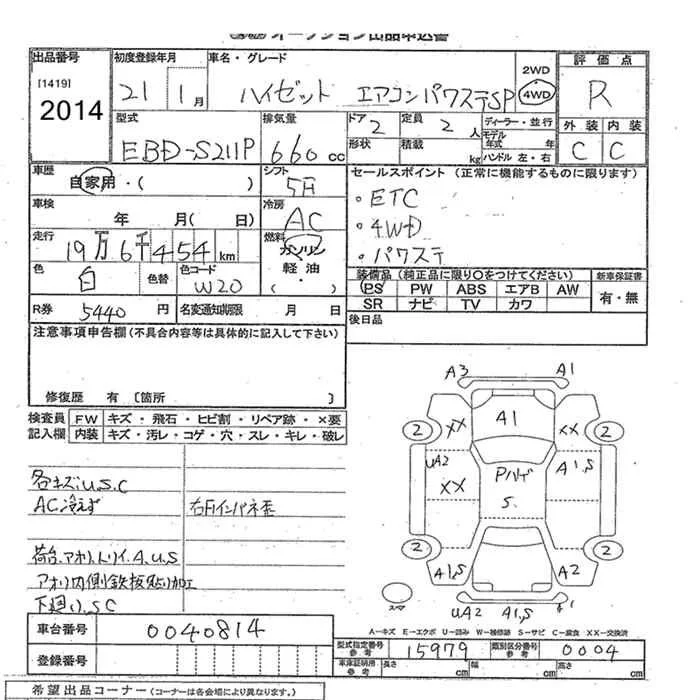 オークション出品申込書
出品番号 初度登録年月 車名・グレード 評価点
[1419] 2014
21 1月 ハイゼット エアコンパワステSP 2WD 4WD R
型式 排気量 ドア 定員 ディーラー・並行 外装 内装
EBD-S211P 660cc 2 2人 モデル年式 年 C C
形状 積載 kg ハンドル 左・右
車歴 シフト セールスポイント(正常に機能するものに限ります)
自家用・( ) 5F
・ETC
・4WD
・パワステ
車検 冷房
年 月(日) AC
走行 燃料
19万6千454km ガソリン
軽油
(・)
色 色替 色コード
白 W20
装備品(純正品に限り○をつけてください) 新車保証書
PS PW ABS エアB AW 有・無
SR ナビ TV カワ
R券 5440円 名変通知期限 月 日
後日品
注意事項申告欄(不具合内容等は具体的に記入して下さい)
修復歴 有〔箇所 〕
検査員 FW キズ・飛石・ヒビ割・リペア跡・×要
記入欄 内装 キズ・汚レ・コゲ・穴・スレ・キレ・破レ
各キズ.U.S.C
AC冷えず 右Fインパネ歪
荷台.アオリ.トリイ.A.U.S
アオリ内側鉄板貼り加工
下廻り.SC
A3 A1
XX A1 XX
2 2
UA2 A1,S
XX Pハゲ
S.
2 2
A1,S A2
スマ UA2 A1,S
A−キズ E−エクボ U−凹み W−補修跡 S−サビ C−腐食 XX−交換済
車台番号 0040814
型式指定番号 参考 15979 類別区分番号 参考 0004
登録番号
車庫証明用 参考 長さ cm 幅 cm 高さ cm
希望出品コーナー(コーナーは各会場により異なります。)